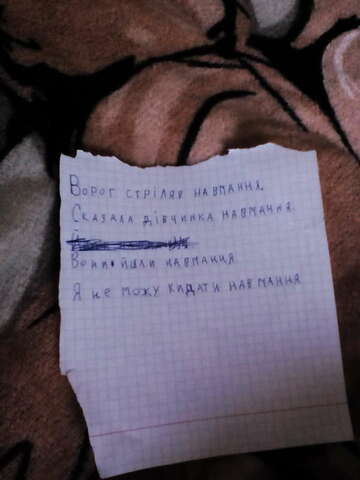 Ворог стріляв навмання.
Сказала дівчинка навмання.
Й
Вони йшли навмання
Я не можу кидати навмання